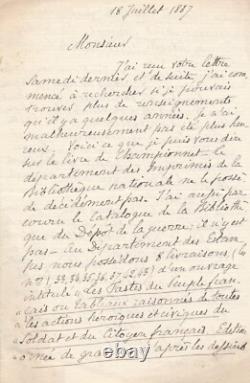 18 Juillet 1887
Monsieur
J'ai reçu votre lettre
samedi dernier et de suite, j'ai com-
mencé à rechercher si je pouvais
trouver plus de renseignements
qu'il y a quelques années. Je n'ai
malheureusement pas été plus heu-
reux. Voici ce que je puis vous dire
sur le livre de Championnet - Le
département des Imprimés de la
Bibliothèque nationale ne le possè-
de décidément pas. J'ai aussi par-
couru le Catalogue de la Biblioth-
que du Dépôt de la guerre; il n'y est
pas - Au Département des Estam-
pes, nous possédons 8 livraisons (les
nos 33, 34, 35, 36, 37, ) d'un ouvrage
intitulé "Les Fastes du peuple fran-
çais ou tableaux raisonnés de toutes
"les actions héroïques et civiques du
"Soldat et du Citoyen français. Edition
"ornée de gravures d'après les dessins